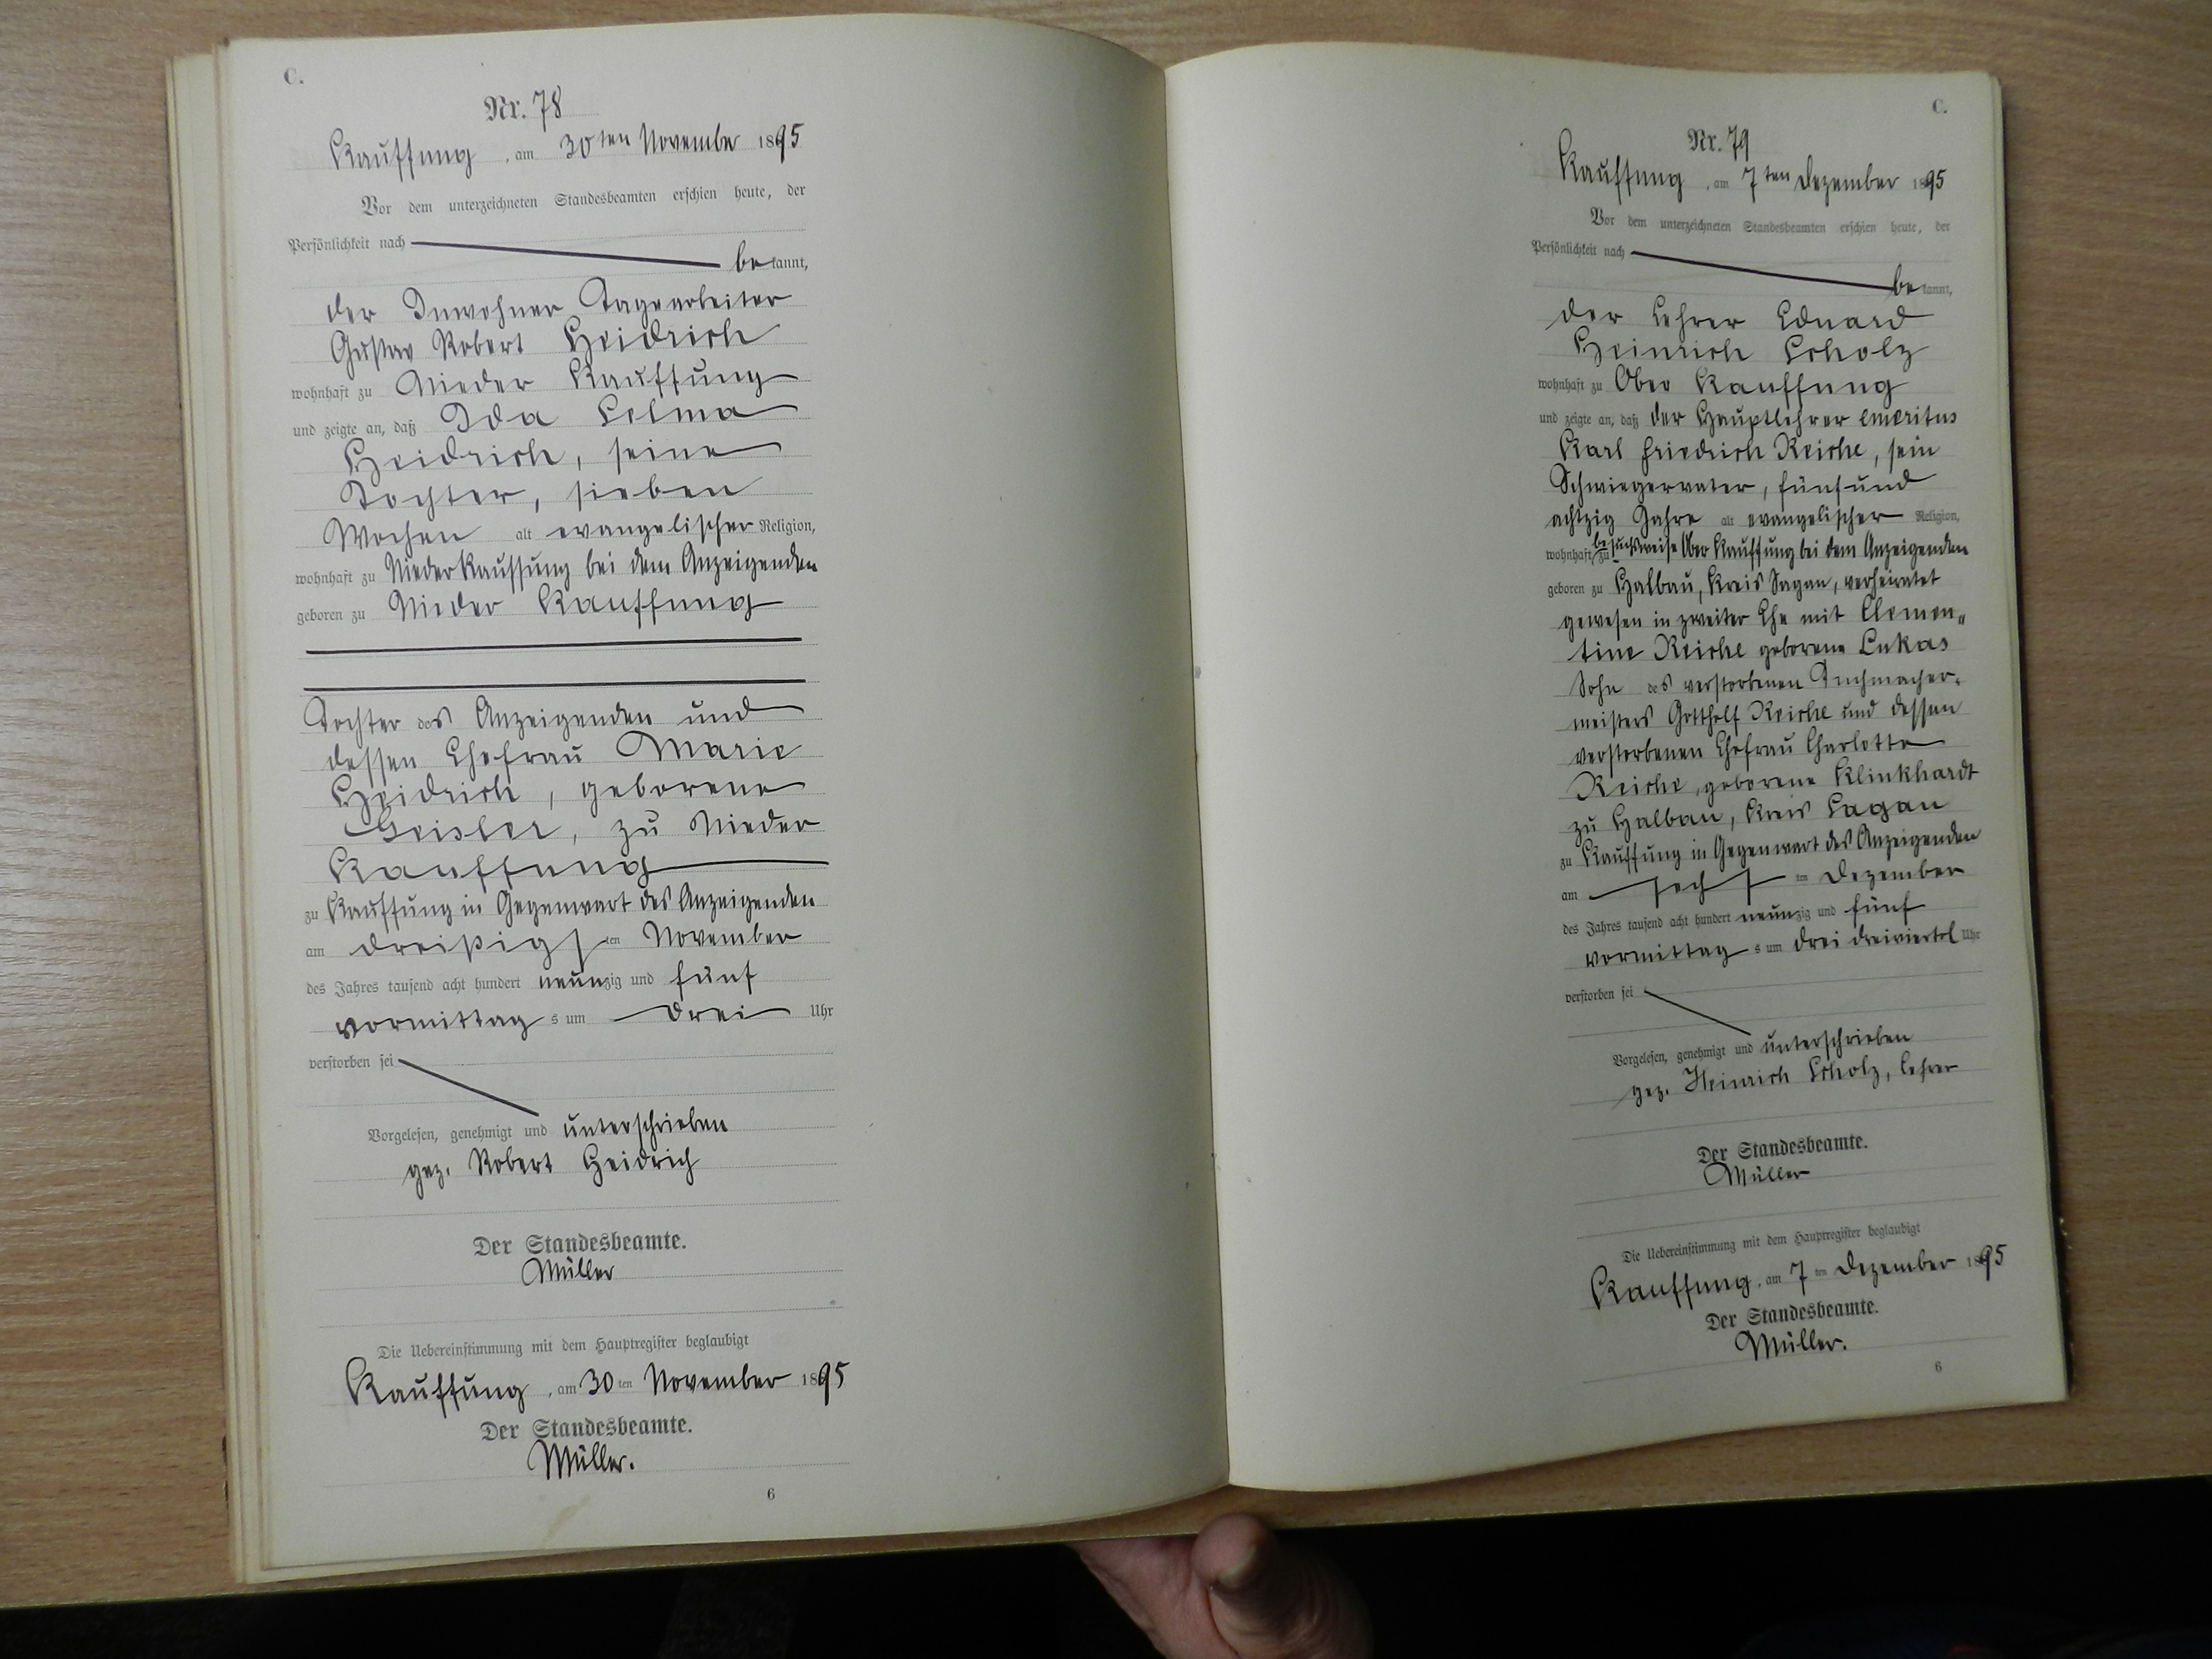 C.
Nr. 78
Kauffung, am 30ten November 1895
Vor dem unterzeichneten Standesbeamten erschien heute, der
Persönlichkeit nach
bekannt,
der Inwohner Tagearbeiter
Gustav Robert Heidrich
wohnhaft zu Nieder Kauffung
und zeigte an, daß Ida Selma
Heidrich, seine
Tochter, sieben
Wochen alt evangelischer Religion,
wohnhaft zu Nieder Kauffung bei dem Anzeigenden
geboren zu Nieder Kauffung
Tochter des Anzeigenden und
dessen Ehefrau Marie
Heidrich, geborene
Geisler, zu Nieder
Kauffung
zu Kauffung in Gegenwart des Anzeigenden
am dreißigsten November
des Jahres tausend acht hundert neunzig und fünf
vormittags um drei Uhr
verstorben sei
Vorgelesen, genehmigt und unterschrieben
gez. Robert Heidrich
Der Standesbeamte.
Müller
Die Uebereinstimmung mit dem Hauptregister beglaubigt
Kauffung, am 30ten November 1895
Der Standesbeamte.
Müller.
6
C.
Nr. 79
Kauffung, am 7ten Dezember 1895
Vor dem unterzeichneten Standesbeamten erschien heute, der
Persönlichkeit nach
bekannt,
der Lehrer Eduard
Heinrich Scholz
wohnhaft zu Ober Kauffung
und zeigte an, daß der Hauptlehrer emeritus
Karl Friedrich Reiche, sein
Schwiegervater, fünfund
achtzig Jahre alt evangelischer Religion,
wohnhaft zu besuchsweise Ober Kauffung bei dem Anzeigenden
geboren zu Halbau, Kreis Sagan, verheiratet
gewesen in zweiter Ehe mit Clemen„
tine Reiche geborene Lukas
Sohn des verstorbenen Tuchmacher-
meisters Gotthelf Reiche und dessen
verstorbenen Ehefrau Charlotte
Reiche, geborene Klinkhardt
zu Halbau, Kreis Sagan
zu Kauffung in Gegenwart des Anzeigenden
am sechsten Dezember
des Jahres tausend acht hundert neunzig und fünf
vormittags um drei dreiviertel Uhr
verstorben sei
Vorgelesen, genehmigt und unterschrieben
gez. Heinrich Scholz, Lehrer
Der Standesbeamte.
Müller
Die Uebereinstimmung mit dem Hauptregister beglaubigt
Kauffung, am 7ten Dezember 1895
Der Standesbeamte.
Müller.
6